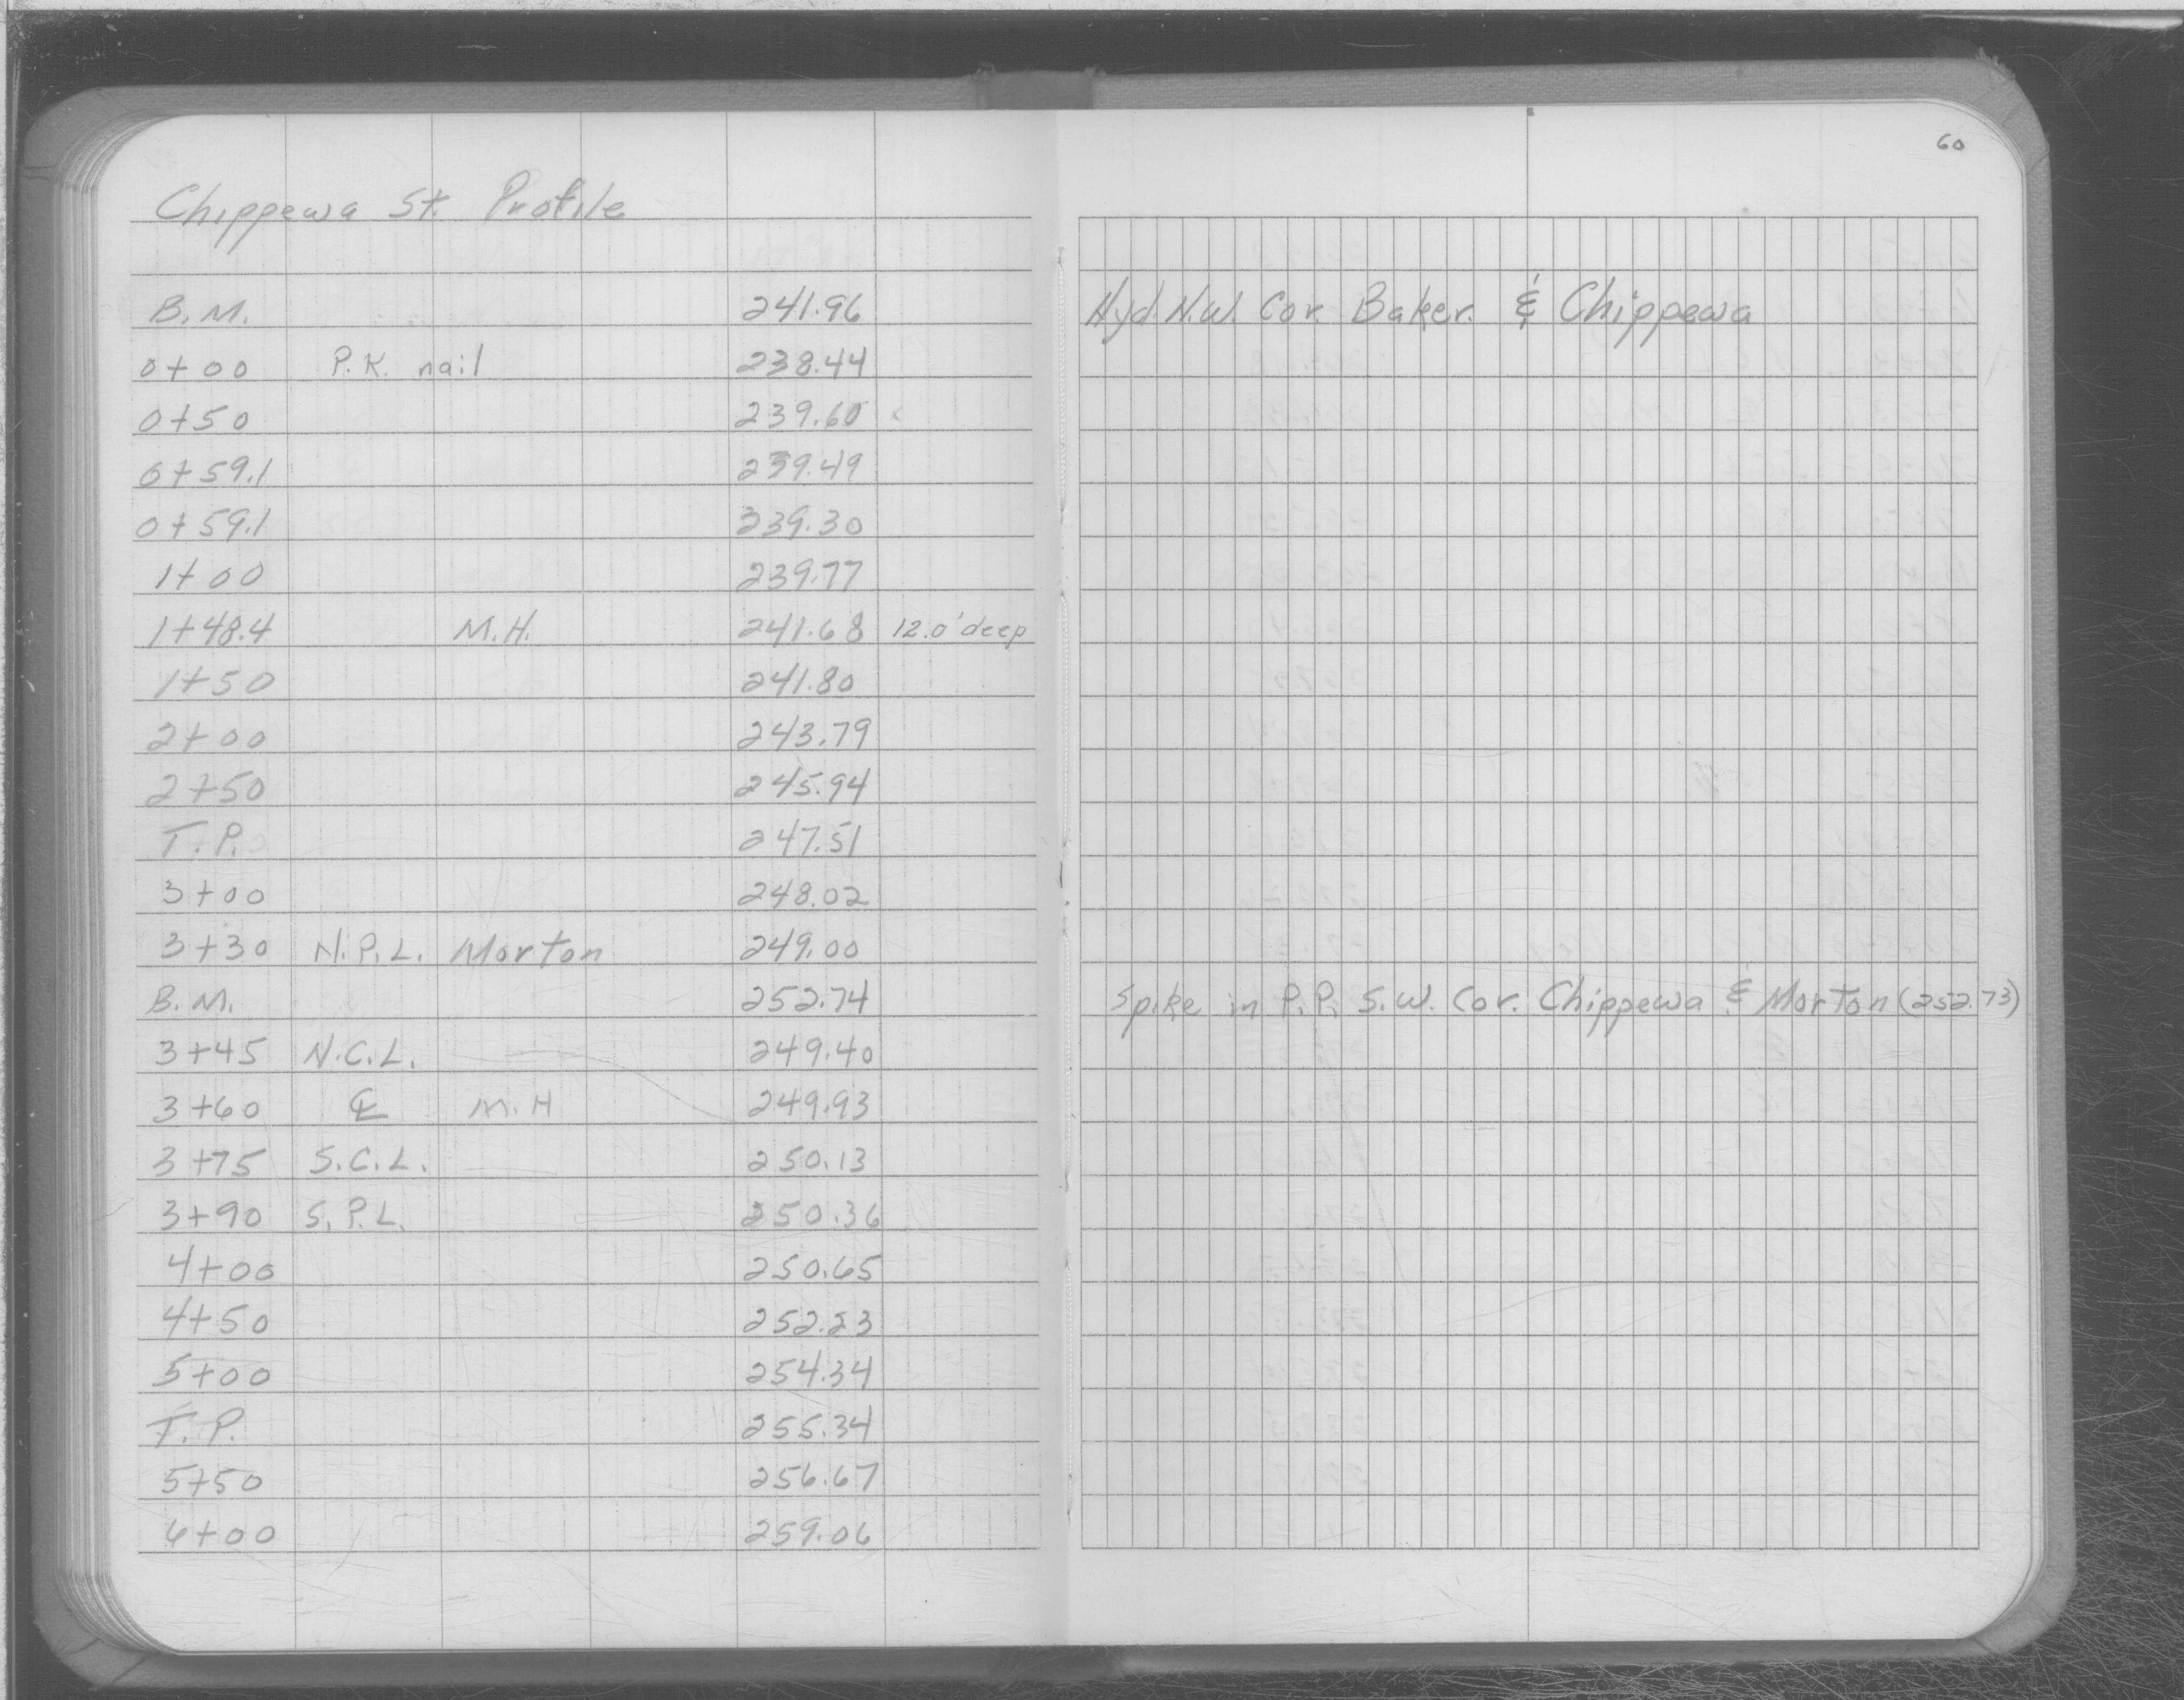 60
Chippewa St. Profile
B.M. 241.96 Hyd. N.W. Cor. Baker. & Chippewa
0+00 P.K. nail 238.44
0+50 239.60
0+59.1 239.49
0+59.1 239.30
1+00 239.77
1+48.4 M.H. 241.68 12.0' deep
1+50 241.80
2+00 243.79
2+50 245.94
T.P. 247.51
3+00 248.02
3+30 N.P.L. Morton 249.00
B.M. 252.74 Spike in P.P. S.W. Cor. Chippewa & Morton (252.73)
3+45 N.C.L. 249.40
3+60 ℄ M.H 249.93
3+75 S.C.L. 250.13
3+90 S.P.L. 250.36
4+00 250.65
4+50 252.23
5+00 254.34
T.P. 255.34
5+50 256.67
6+00 259.06